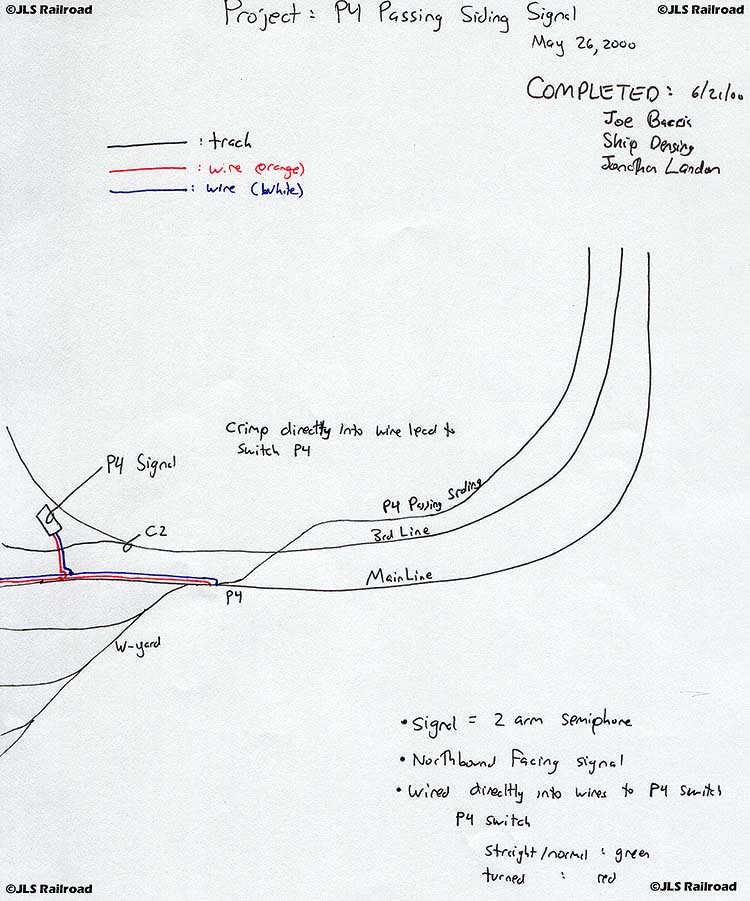 ©JLS Railroad
©JLS Railroad
Project: P4 Passing Siding Signal
May 26, 2000
COMPLETED: 6/21/00
Joe
Skip
Jonathan Landon
: track
: wire (orange)
: wire (white)
Crimp directly into wire lead to
Switch P4
P4 Signal
P4 Passing Siding
C2
3rd Line
MainLine
P4
W-yard
• Signal = 2 arm semiphone
• Northbound Facing signal
• Wired directly into wires to P4 switch
P4 switch
straight/normal : green
turned : red
©JLS Railroad
©JLS Railroad